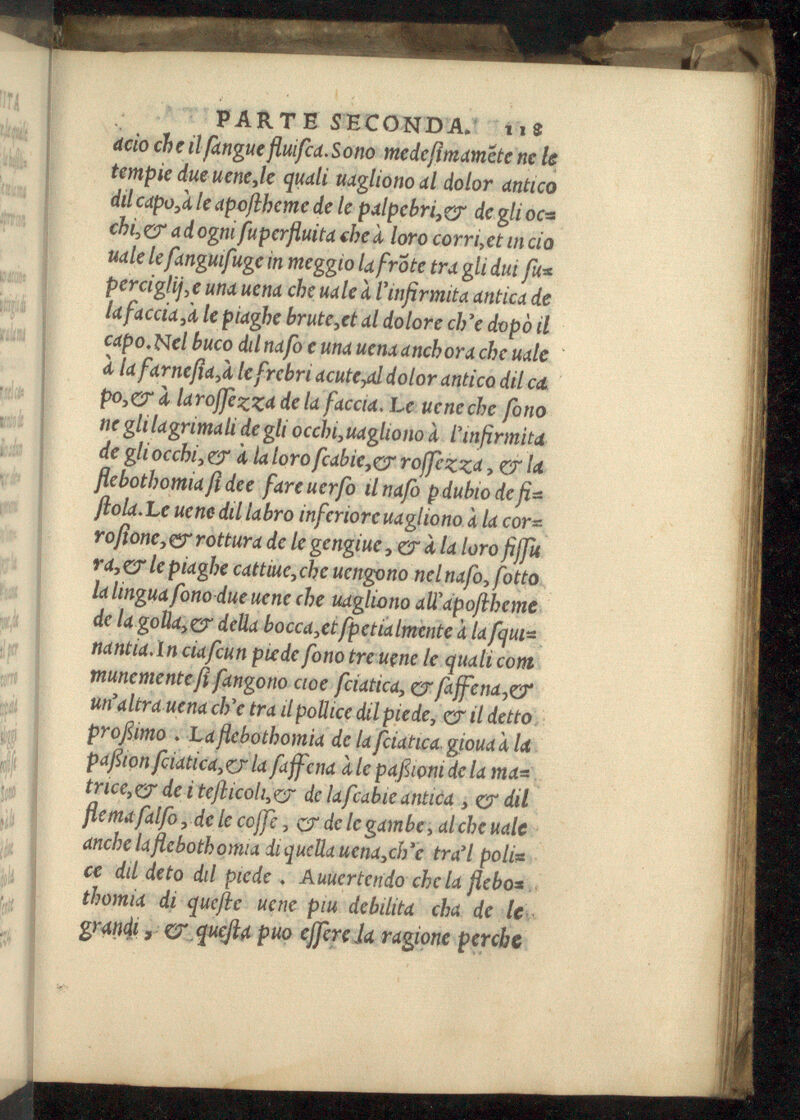 PARTE SECONDA. 118
acio che il ſangue fluiſca. Sono medeſimamēte ne le
tempie due uene, le quali uagliono al dolor antico
dil capo, à le apoſtheme de le palpebri, & de gli oc=
chi, & ad ogni ſuperfluita che à loro corri, et in cio
uale le ſanguiſuge in meggio la frōte tra gli dui ſu=
perciglij, e una uena che uale à l'infirmita antica de
la faccia, à le piaghe brute, et al dolore ch'e dopò il
capo. Nel buco dil naſo e una uena anchora che uale
à la farneſia, à le frebri acute, al dolor antico dil ca
po, & à la roſſezza de la faccia. Le uene che ſono
ne gli lagrimali de gli occhi, uagliono à l'infirmita
de gli occhi, & à la loro ſcabie, & roſſezza, & la
flebothomia ſi dee fare uerſo il naſo p dubio de fi=
ſtola. Le uene dil labro inferiore uagliono à la cor=
roſione, & rottura de le gengiue, & à la loro fiſſu
ra, & le piaghe cattiue, che uengono nel naſo, ſotto
la lingua ſono due uene che uagliono all'apoſtheme
de la golla, & della bocca, et ſpetialmente à la ſqui=
nantia. In ciaſcun piede ſono tre uene le quali com
munemente ſi ſangono cioe ſciatica, & ſaffena, &
un'altra uena ch'e tra il pollice dil piede, & il detto
proſsimo. La flebothomia de la ſciatica gioua à la
paſsion ſciatica, & la ſaffena à le paſsioni de la ma=
trice, & de i teſticoli, & de la ſcabie antica, & dil
flema ſalſo, de le coſſe, & de le gambe, al che uale
anche la flebothomia di quella uena, ch'e tra'l poli=
ce dil deto dil piede. Auuertendo che la flebo=
thomia di queſte uene piu debilita cha de le
grandi, & queſta puo eſſere la ragione perche